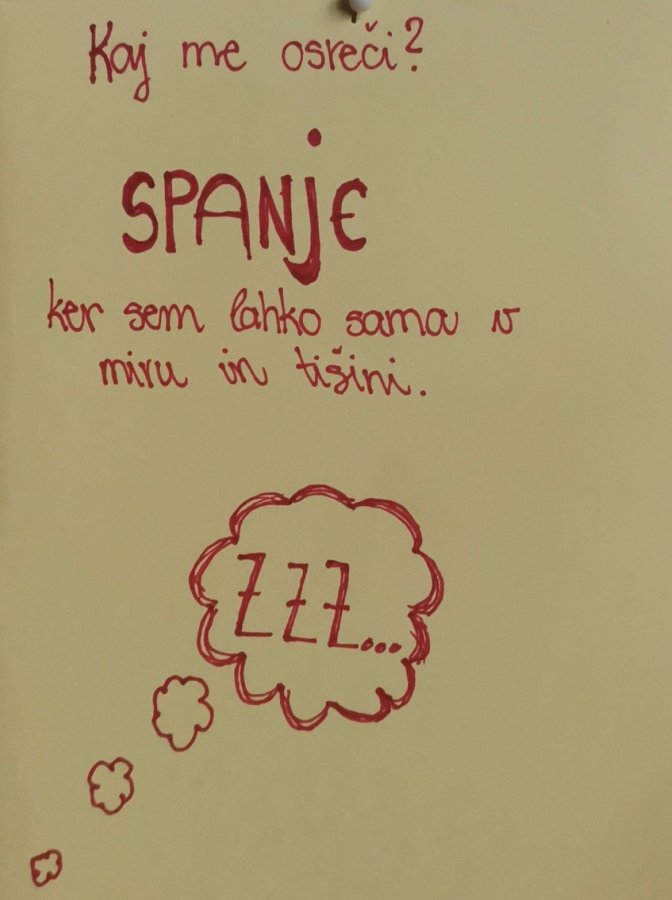 Kaj me osreči?
SPANjE
ker sem lahko sama v
miru in tišini.
ZZZ...